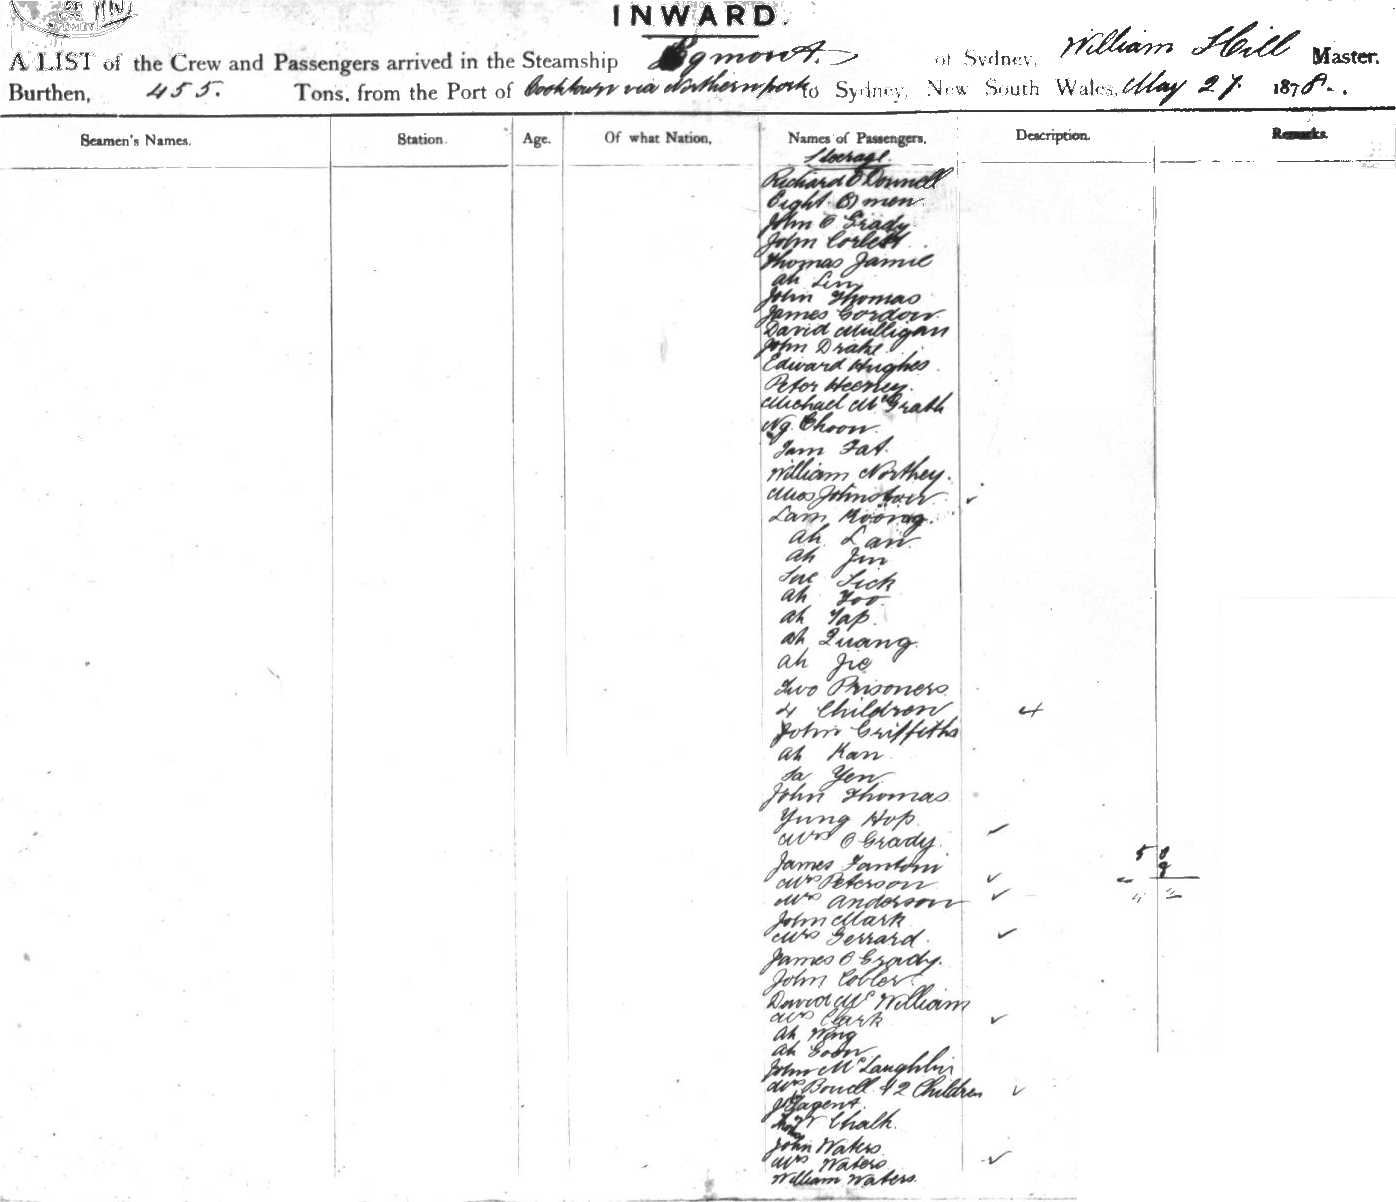 INWARD.
A LIST of the Crew and Passengers arrived in the Steamship Egmont. of Sydney, William Hill Master.
Burthen, 455. Tons, from the Port of Cooktown via Northern ports to Sydney, New South Wales, May 27 1878.
Seamen's Names. Station. Age. Of what Nation, Names of Passengers, Description. Remarks.
Steerage.
Richard O Donnell
Eight (8) men
John O Grady
John Corbett
Thomas Jamie
Ah Lin
John Thomas
James Gordon
David Mulligan
John Drake
Edward Hughes
Peter Heeney
Michael McGrath
Ng Choon
Jam Fat
William Northey.
Miss Johnston
Lam Koong.
Ah Lan
Ah Jin
Sue Sick
Ah Foo
Ah Yap
Ah Quang
Ah Jie
Two Prisoners
4 Children 4
John Griffiths
Ah Kan
Sa Yen
John Thomas
Yung Hop
Mrs O Grady
James Fantoni
Mrs Peterson
Mrs Anderson
John Mark
Mrs Gerrard
James O Grady.
John Cobler
David McWilliam
Mrs Clark
Ah Wing
Ah Goon
John McLaughlin
Mrs Bouell & 2 Children
Sagent.
W Chalk.
John Waters
Mrs Waters
William Waters.